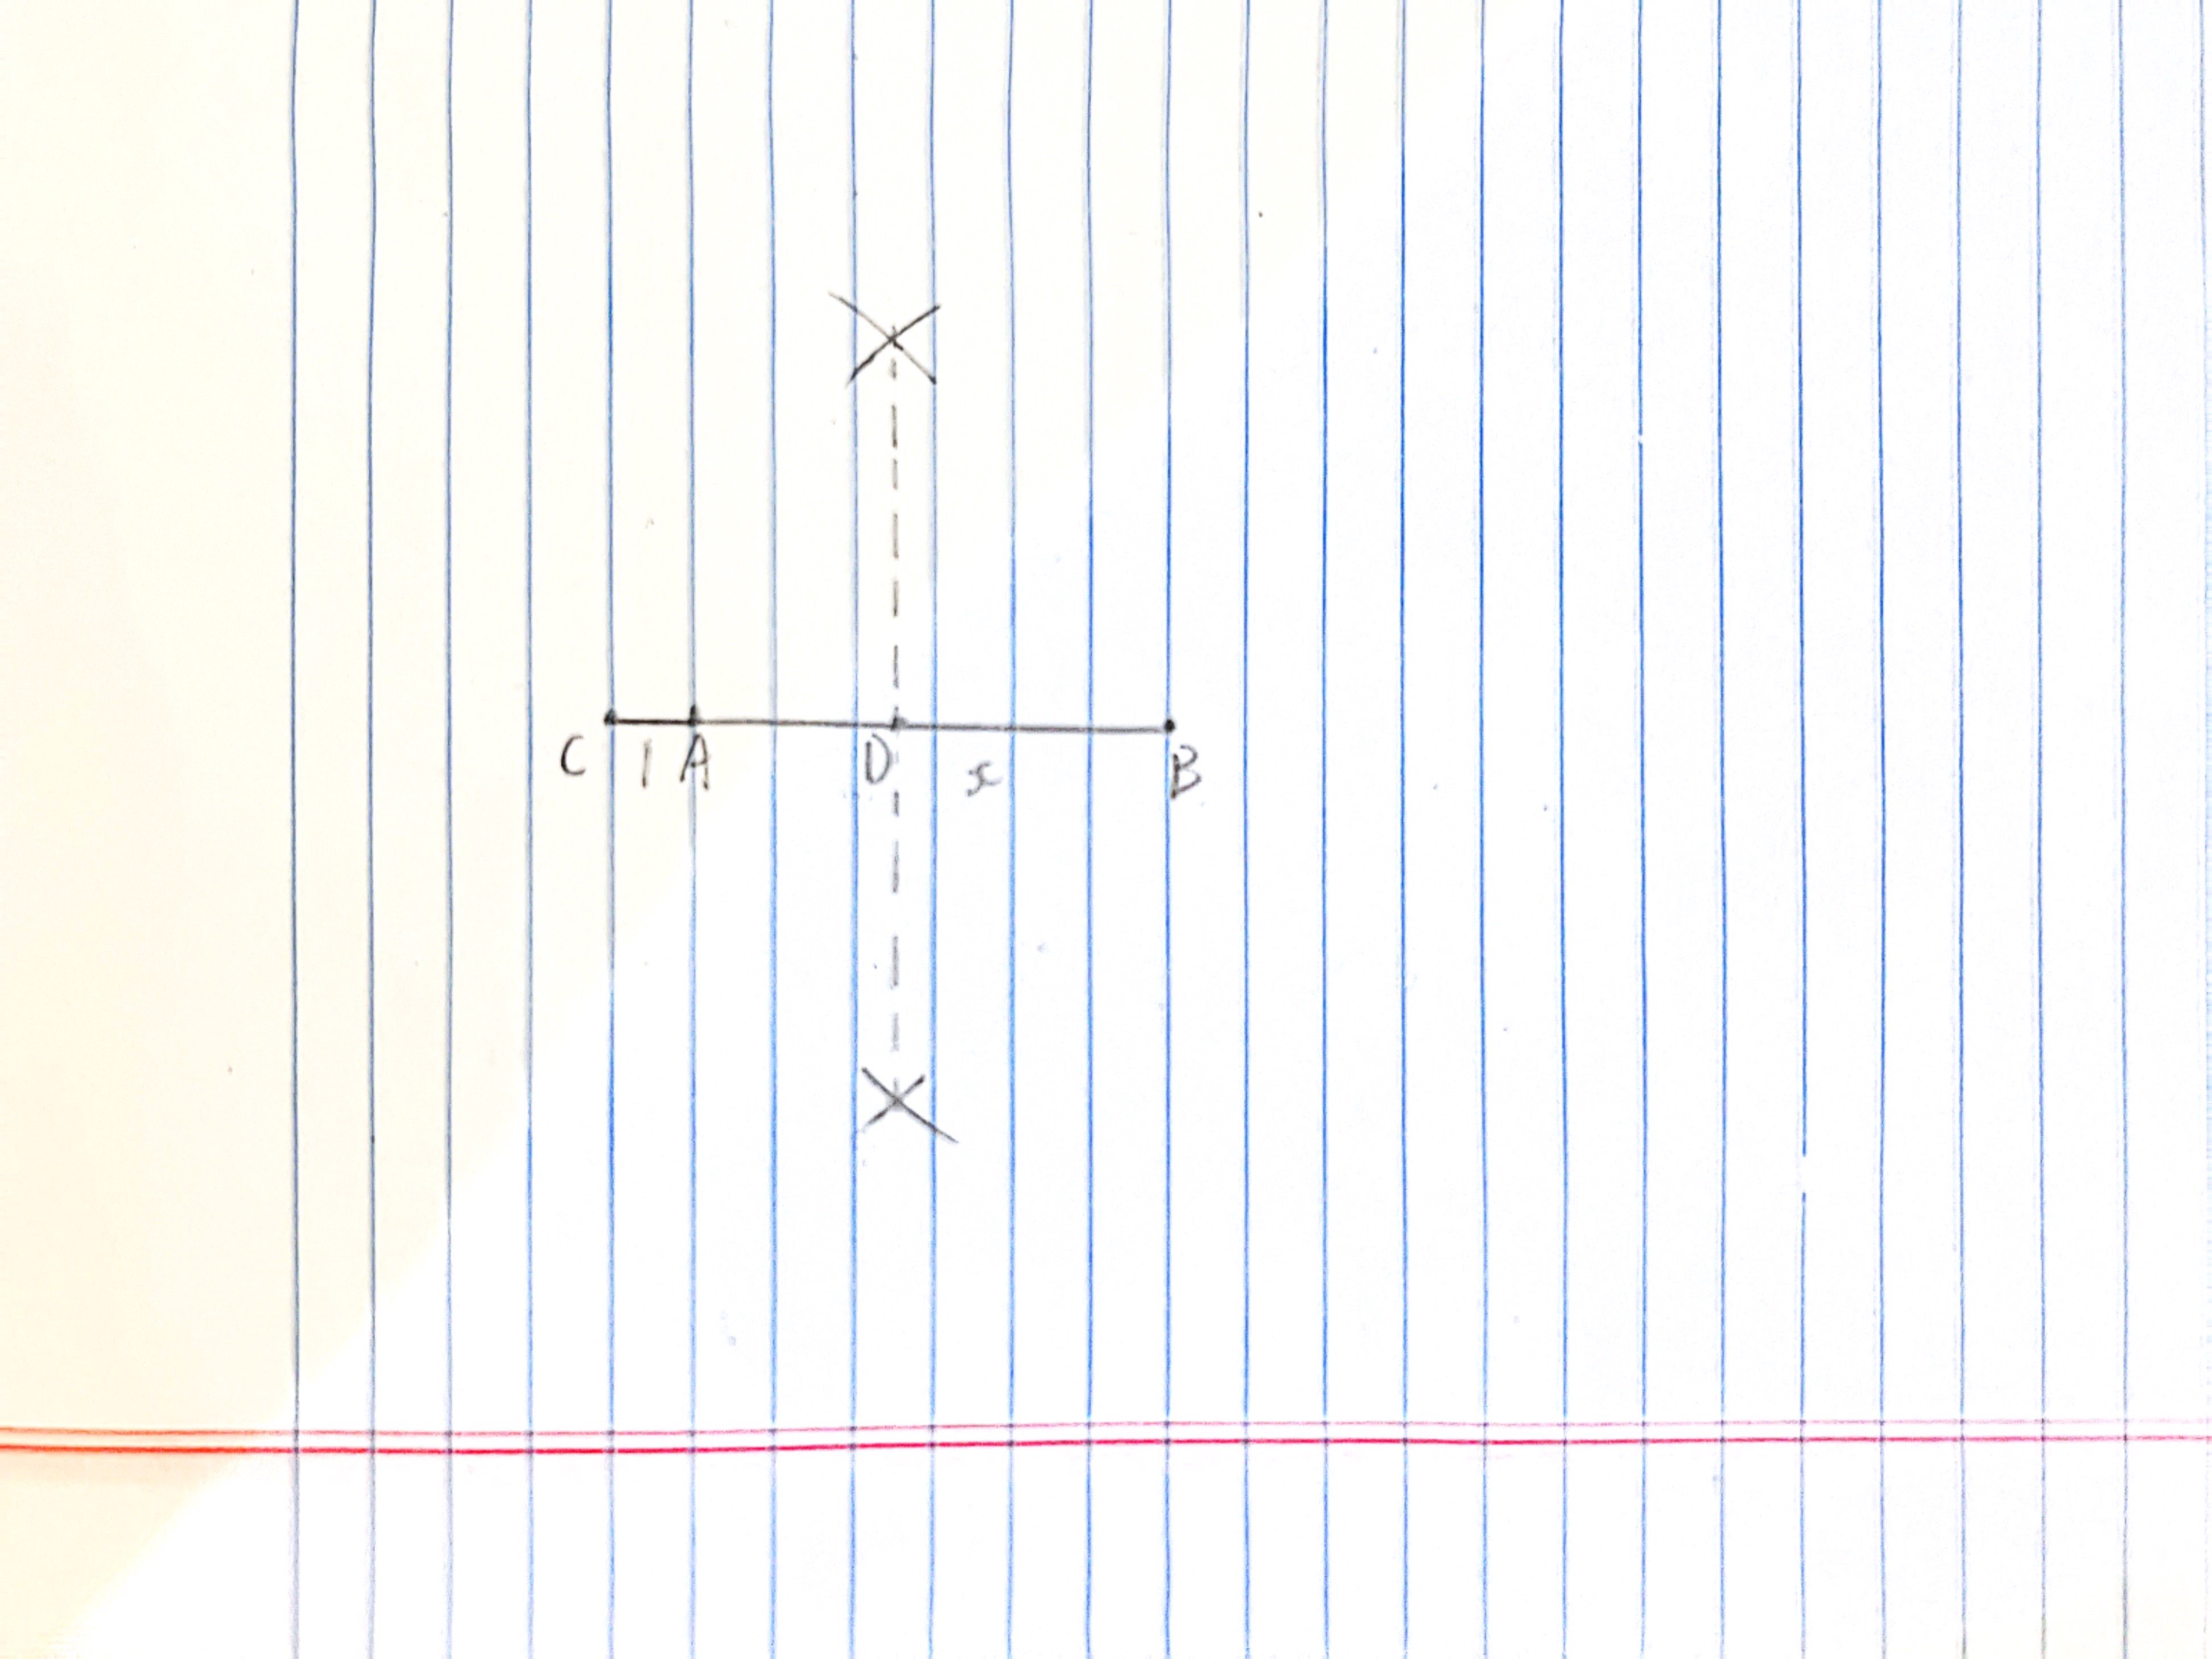 C 1 A D x B